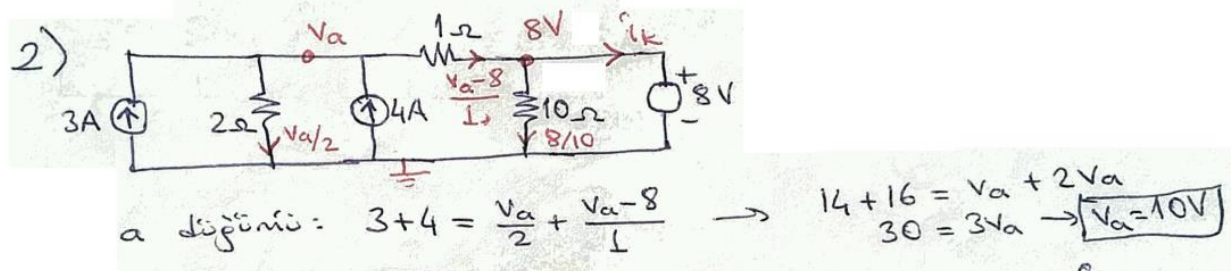 2)
Va
1Ω
8V
iK
3A
2Ω
Va/2
4A
Va-8
1
10Ω
8/10
+
8V
-
a düğümü: 3+4 = Va/2 + Va-8/1 → 14+16 = Va + 2Va
30 = 3Va → Va=10V